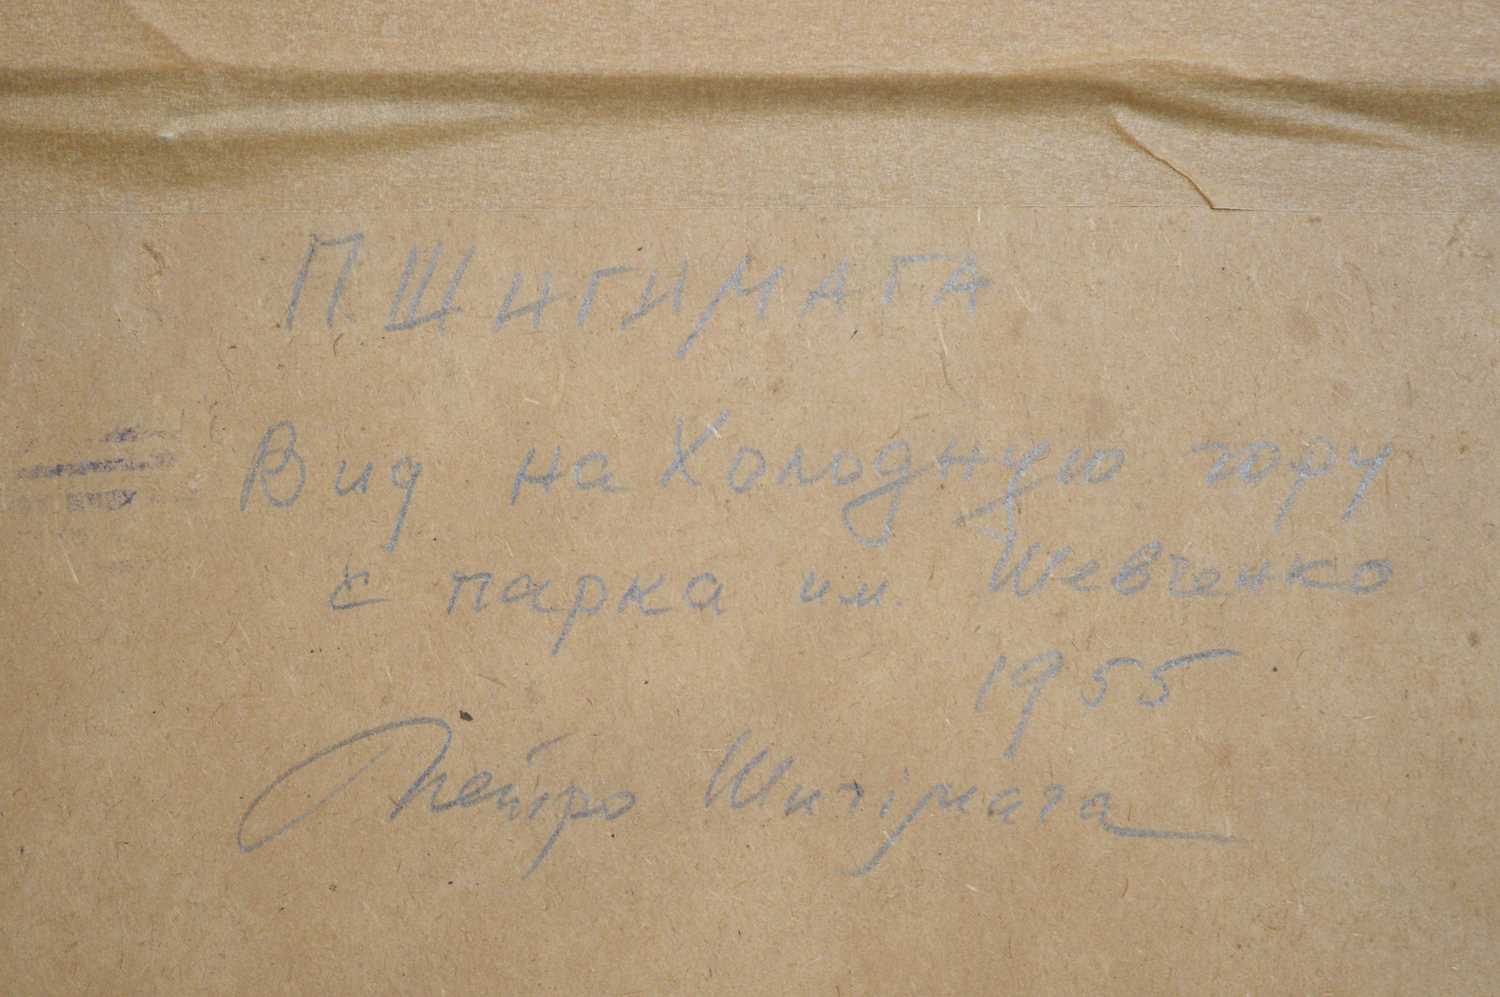 П ШИГИМАГА
Вид на Холодную гору
с парка им. Шевченко
1955
Петро Шигімага